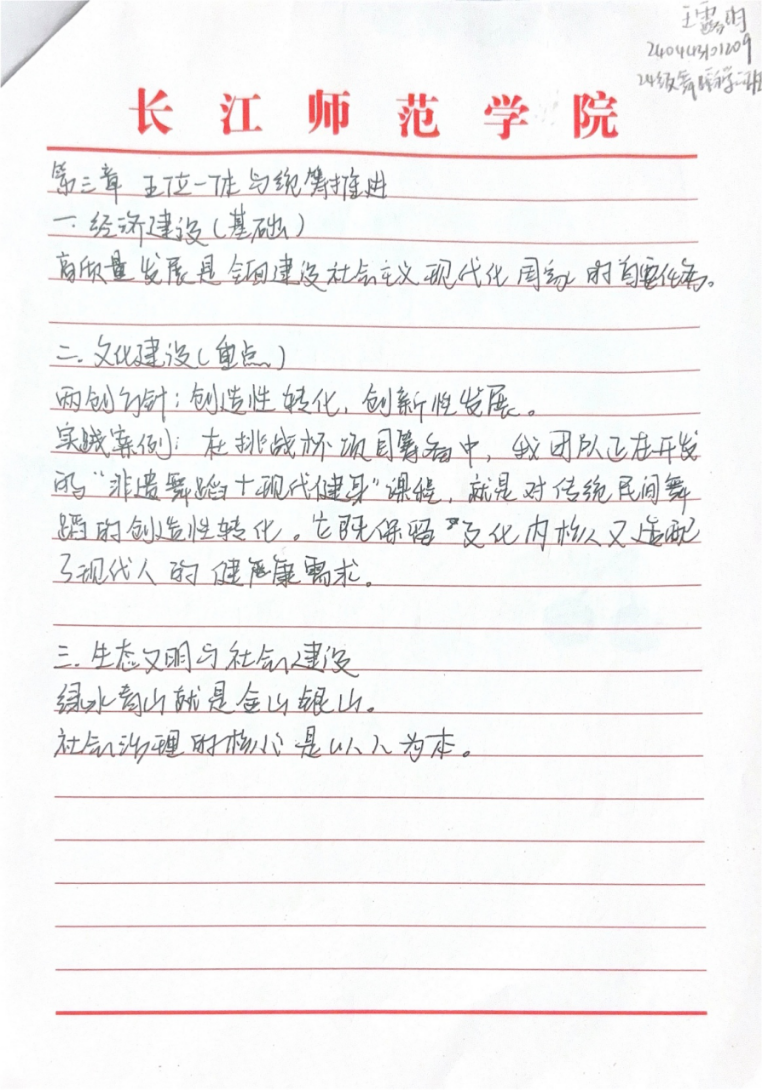 王露羽
240443101209
24级舞蹈学二班
长江师范学院
第三章 五位一体与统筹推进
一.经济建设(基础)
高质量发展是全面建设社会主义现代化国家的首要任务。
二.文化建设(重点)
两创方针:创造性转化,创新性发展。
实践案例:在挑战杯项目筹备中,我团队正在开发
的"非遗舞蹈+现代健身"课程,就是对传统民间舞
蹈的创造性转化。它既保留文化内核,又适配
了现代人的健康需求。
三.生态文明与社会建设
绿水青山就是金山银山。
社会治理的核心是以人为本。